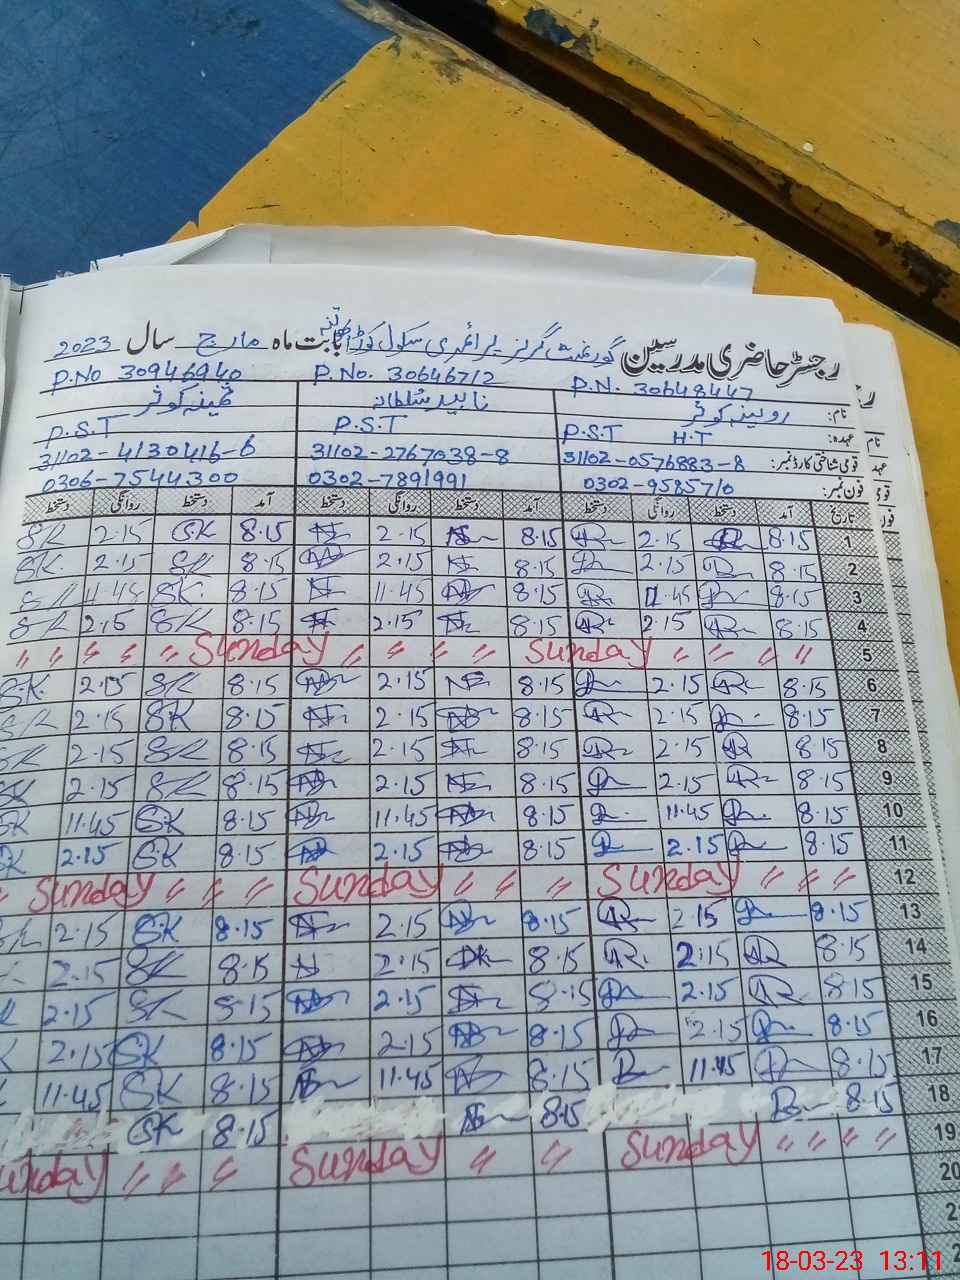 رجسٹر حاضری مدرسین گورنمنٹ گرلز پرائمری سکول بابت ماہ مارچ سال 2023
P.N. 30648447 P.No. 30646712 P.No 30946940
نام: روبینہ کوثر ناہید سلطانہ ثمینہ کوثر
عہدہ: P.S.T H.T P.S.T P.S.T
قومی شناختی کارڈ نمبر: 31102-0576883-8 31102-2767038-8 31102-4130416-6
فون نمبر: 0302-9585710 0302-7891991 0306-7544300
تاریخ آمد دستخط روانگی دستخط آمد دستخط روانگی دستخط آمد دستخط روانگی دستخط
1 8.15 2.15 8.15 2.15 8.15 SK 2.15 SK
2 8.15 2.15 8.15 2.15 8.15 SK 2.15 SK.
3 8.15 11.45 8.15 11.45 8.15 SK. 11.45 SK
4 8.15 2.15 8.15 2.15 8.15 SK 2.15 SK
5 〃 〃 〃 〃 Sunday 〃 〃 〃 〃 Sunday 〃 〃 〃 〃 〃
6 8.15 2.15 8.15 2.15 8.15 SK 2.15 S.K.
7 8.15 2.15 8.15 2.15 8.15 SK 2.15 SK
8 8.15 2.15 8.15 2.15 8.15 SK 2.15 SK
9 8.15 2.15 8.15 2.15 8.15 SK 2.15 SK
10 8.15 11.45 8.15 11.45 8.15 SK 11.45 SK
11 8.15 2.15 8.15 2.15 8.15 SK 2.15 SK
12 〃 〃 〃 Sunday 〃 〃 〃 Sunday 〃 〃 〃 Sunday
13 8.15 2.15 8.15 2.15 8.15 SK 2.15 SK
14 8.15 2.15 8.15 2.15 8.15 SK 2.15
15 8.15 2.15 8.15 2.15 8.15 SK 2.15
16 8.15 2.15 8.15 2.15 8.15 SK 2.15
17 8.15 11.45 8.15 11.45 8.15 SK 11.45
18 8.15 8.15 8.15 SK
19 〃 〃 〃 〃 Sunday 〃 〃 Sunday 〃 〃 〃 Sunday
20
18-03-23 13:11